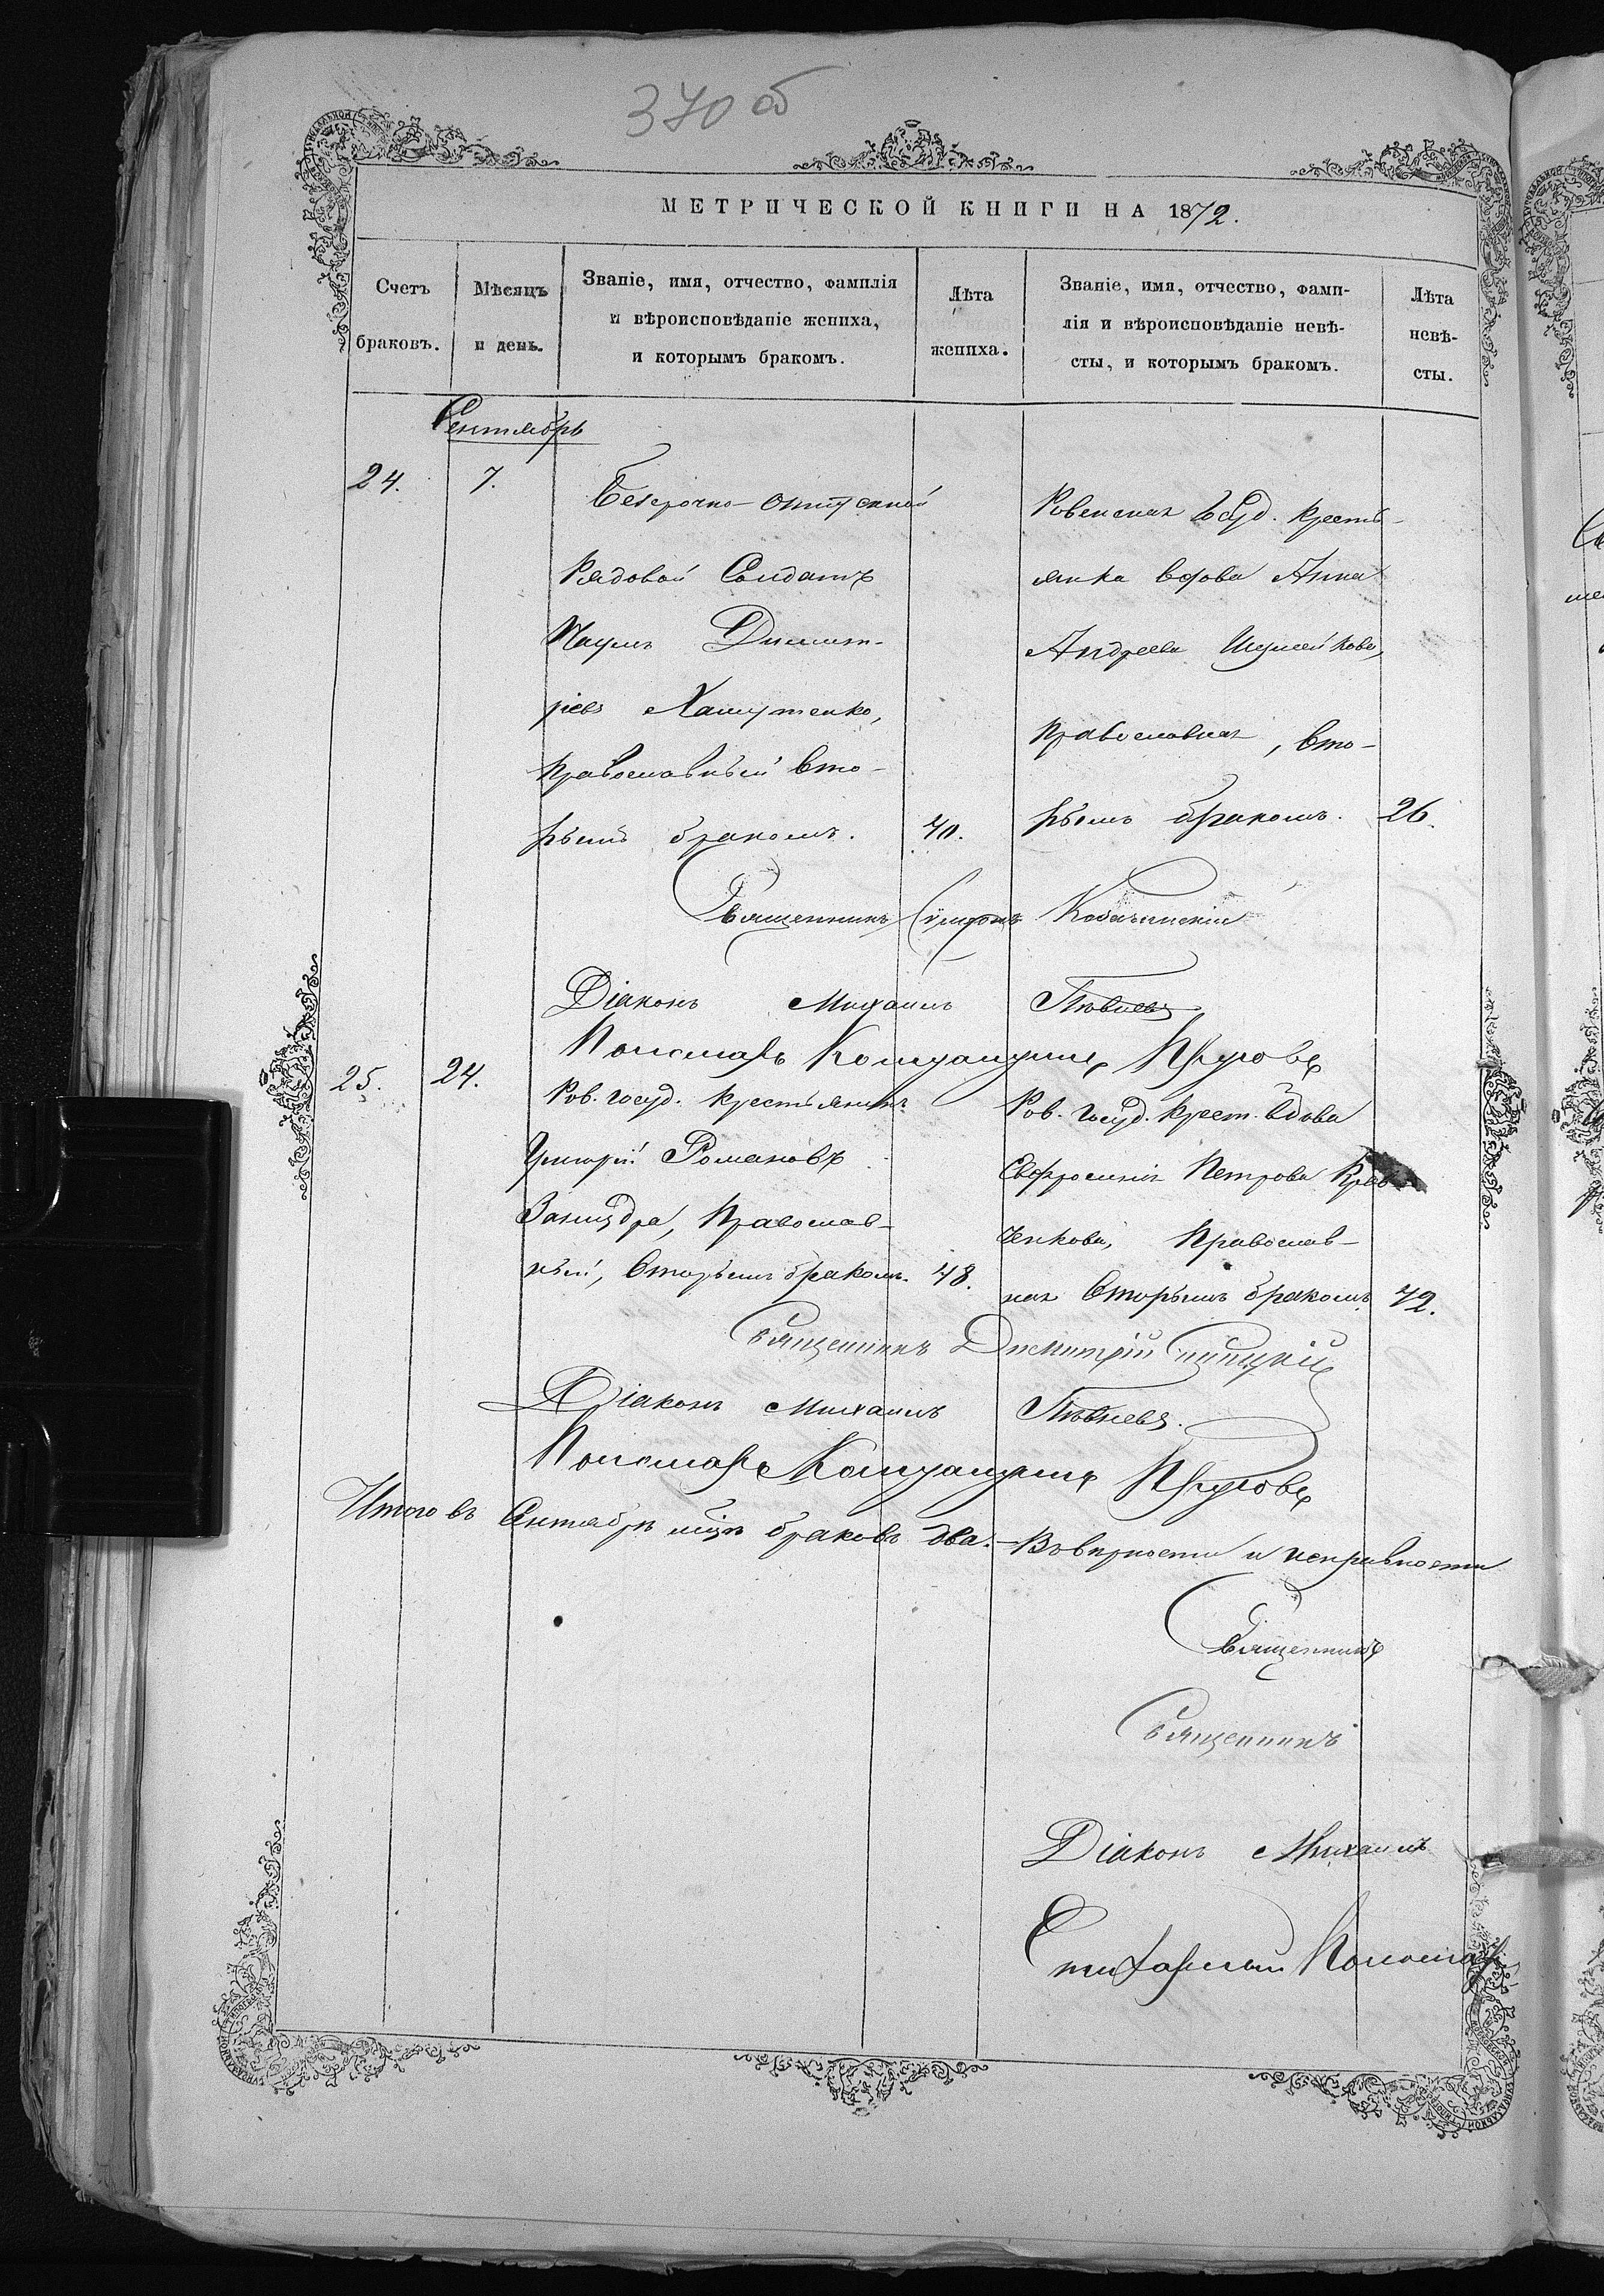 370 об
МЕТРИЧЕСКОЙ КНИГИ НА 1872.
Счетъ браковъ.
Мѣсяцъ и день.
Званіе, имя, отчество, фамилія
и вѣроисповѣданіе жениха,
и которымъ бракомъ.
Лѣта жениха.
Званіе, имя, отчество, фами-
лія и вѣроисповѣданіе невѣ-
сты, и которымъ бракомъ.
Лѣта невѣ-
сты.
Сентябрь
24. 7.
Безсрочно-отпускной
Рядовой Солдатъ
Наумъ Димит-
ріевъ Хашутенко,
Православный вто-
рымъ бракомъ. 40.
Ровенская Госуд. кресть-
янка вдова Анна
Андреева Шумейкова,
Православная, вто-
рымъ бракомъ. 26.
Священникъ Симеонъ
Діаконъ Михаилъ Пѣвневъ
Пономарь Пруговъ
25. 24.
Ров. госуд. крестьянинъ
Григорій Романовъ
Занездра, Православ-
ный, вторымъ бракомъ. 48.
Ров. Госуд. Крест. вдова
Евфросинія Петрова Крав
ченкова, Православ-
ная вторымъ бракомъ 42.
Священникъ Димитрій
Діаконъ Михаилъ Пѣвневъ.
Пономарь Пруговъ
Итого въ Сентябрѣ мцѣ браковъ два. – Въ вѣрности и исправности
Священникъ
Священникъ
Діаконъ Михаилъ
Стихарный Пономарь